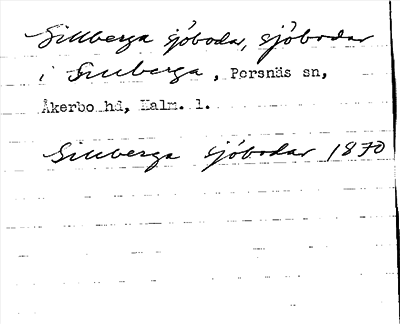 Sillberga sjöbodar, sjöbodar
i Snuberga, Persnäs sn,
Åkerbo hd, Kalm. l.
Sillberga sjöbodar 1870